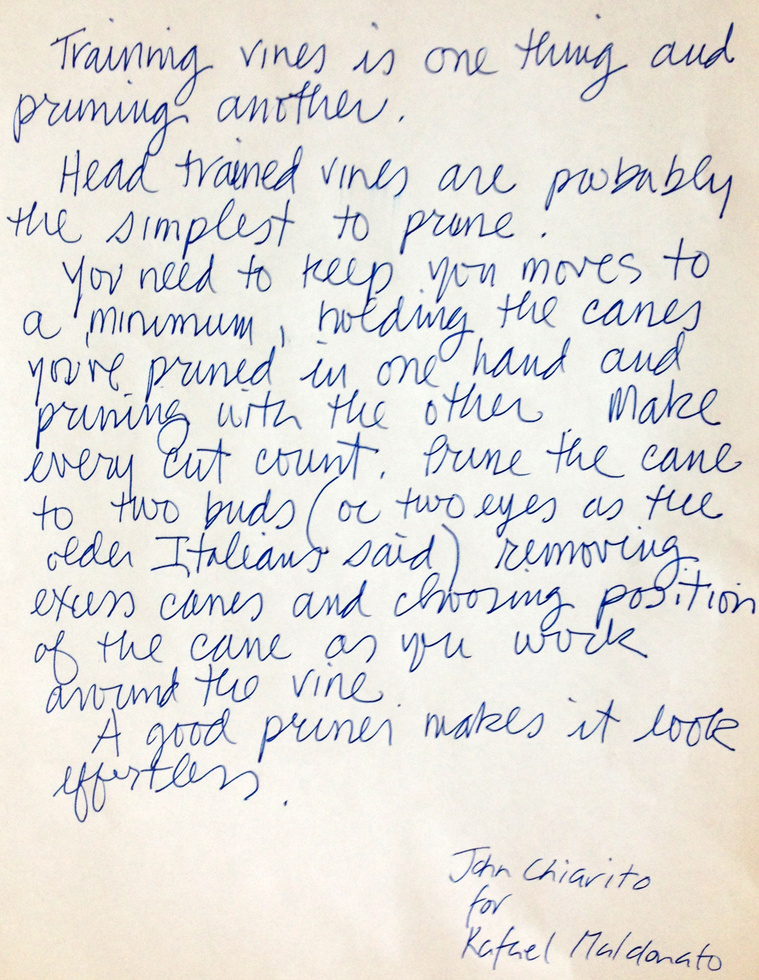 Training vines is one thing and
pruning another.
Head trained vines are probably
the simplest to prune.
You need to keep you moves to
a minimum, holding the canes
you've pruned in one hand and
pruning with the other. Make
every cut count. Prune the cane
to two buds (or two eyes as the
older Italians said) removing
excess canes and choosing position
of the cane as you work
around the vine.
A good pruner makes it look
effortless.
John Chiarito
for
Rafael Maldonato